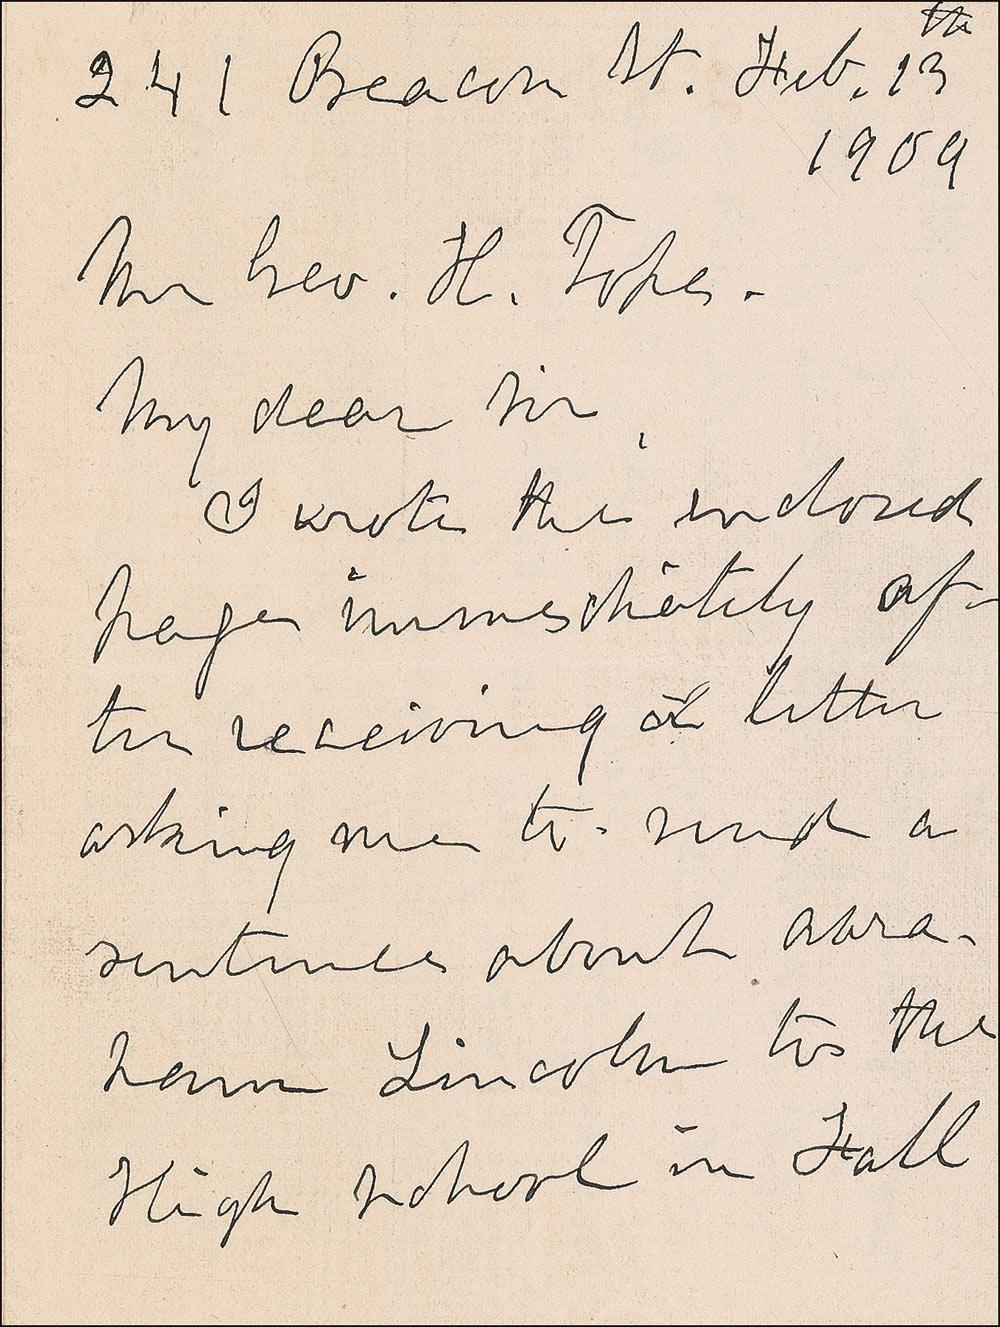 241 Beacon St. Feb. 13th
1909
Mr Geo. H. Topes.
My dear Sir,
I wrote the inclosed
page immediately af-
ter receiving a letter
asking me to send a
sentence about Abra-
ham Lincoln to the
High school in Fall